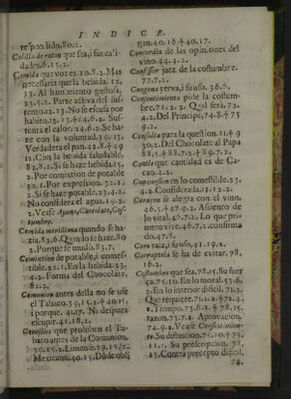 INDICE.
respondido.80.2.
Colilla de raton que sea, i sus cali-
dades.6.15.2.
Comida que vozes.10.8.2. Mas
necessaria que la bebida.12.
13. Al hambriento gustosa.
23.5.2. Parte activa del sus-
tento.12.13. No se escusa por
habito.12.13.&24.6.2. Sus-
tenta el calor.24.6.2. Se ha-
ze con la voluntad.29.13.
Verdadera el pan.42.8.&49
12. Con la bebida saludable.
82.8.2. Si se haze bebida.15.
2. Por comixtion de potable
32.1. Por expression.32.1.
2. Si se haze potable.23.4.2.
No considera el agua.19.2.
2. Vease Ayuno, Chocolate, Cos-
tumbre.
Comida meridiana quando se ha-
zia.83.6. Quando se haze.80
2. Porque se mudó.83.7.
Comixtion de potable, i comes-
tible.22.1. En la bebida.23.
4.2. Forma del Chocolate,
62.2.
Comunion antes della no se use
el Tabaco.39.15.2.&40.15.
i porque.41.17. Ni despues
escupir.41.18.2.
Concilios que prohiben el Ta-
baco antes de la Comunion.
39.15.2. Limense.39.15.2.
Mexicano.40.15. Donde obli
gan.40.16.&40.17.
Concordia de las opiniones del
vino.44.4.2.
Confessor juez de la costumbre.
77.7.2.
Congona yerva, i su uso.36.6.
Consentimiento pide la costum-
bre.71.2.2. Qual será.72.
4.2. Del Principe.74.8.&75
9.2.
Consulta para la question.11.&9
30.2. Del Chocolate al Papa
88.5.&88.7.2.&89.7.2.
que cantidad es de Ca-
cao.4.2.
Conversion en lo comestible.23.
4.2. Considerada.11.12.2.
Coraçon se alegra con el vino.
46.5.&47.9.2. Asiento de
lo vital.46.7.2. Lo que pri-
mero vive.46.7.2. confirma
do.47.8.
Coro raiz, i su uso.41.19.2.
Corruptela se ha de evitar.78.
16.2.
Costumbre que sea.78.15. Su fuer
ça.75.10. En lo moral.53.6.
2. En lo inferior dificil.71.2.
Que requiere.71.1.2.&72.4.
2. Tiempo.73.6.2.&78.15.
razon.73.7.2. Aprovacion.
74.9.2. Vease Consentimien-
to. Su distincion.75.10.&75.
11. Su prescripcion.78.
15. Contra precepto dificil.
78.